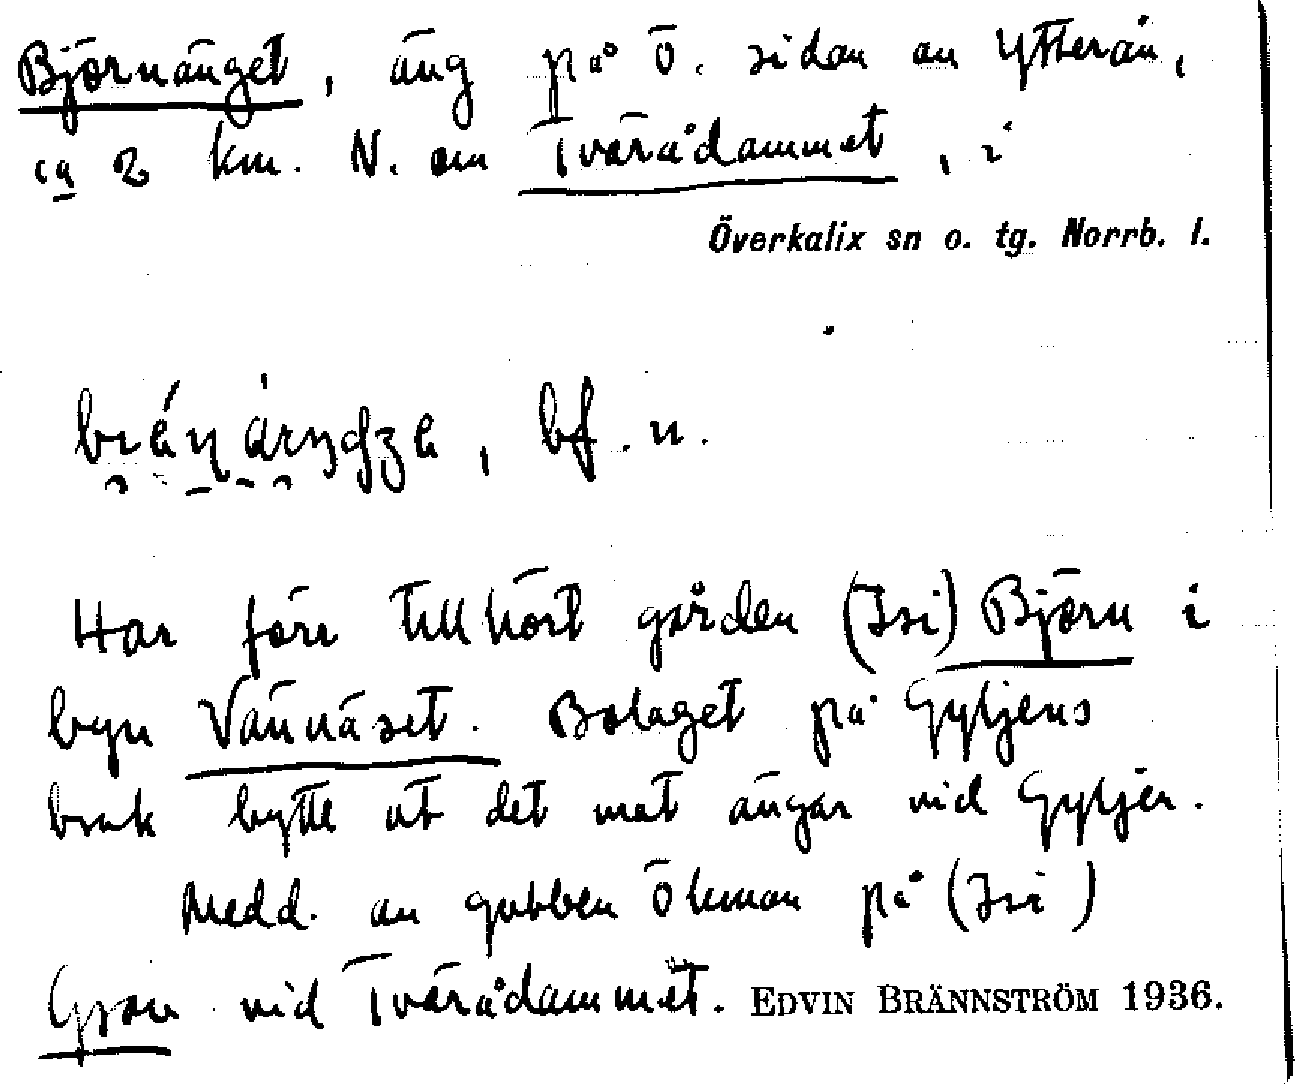 Björnänget, äng på ö. sidan av Ytterån,
ca 2 km. N. om Tvärådammet, i
Överkalix sn o. tg. Norrb. l.
bf. n.
Har förr tillhört gården (Isi) Björn i
byn Vännäset. Bolaget på Gyljens
bruk bytte ut det mot ängar vid Gyljen.
Medd. av gubben Öhman på (Isi)
vid Tvärådammet. EDVIN BRÄNNSTRÖM 1936.